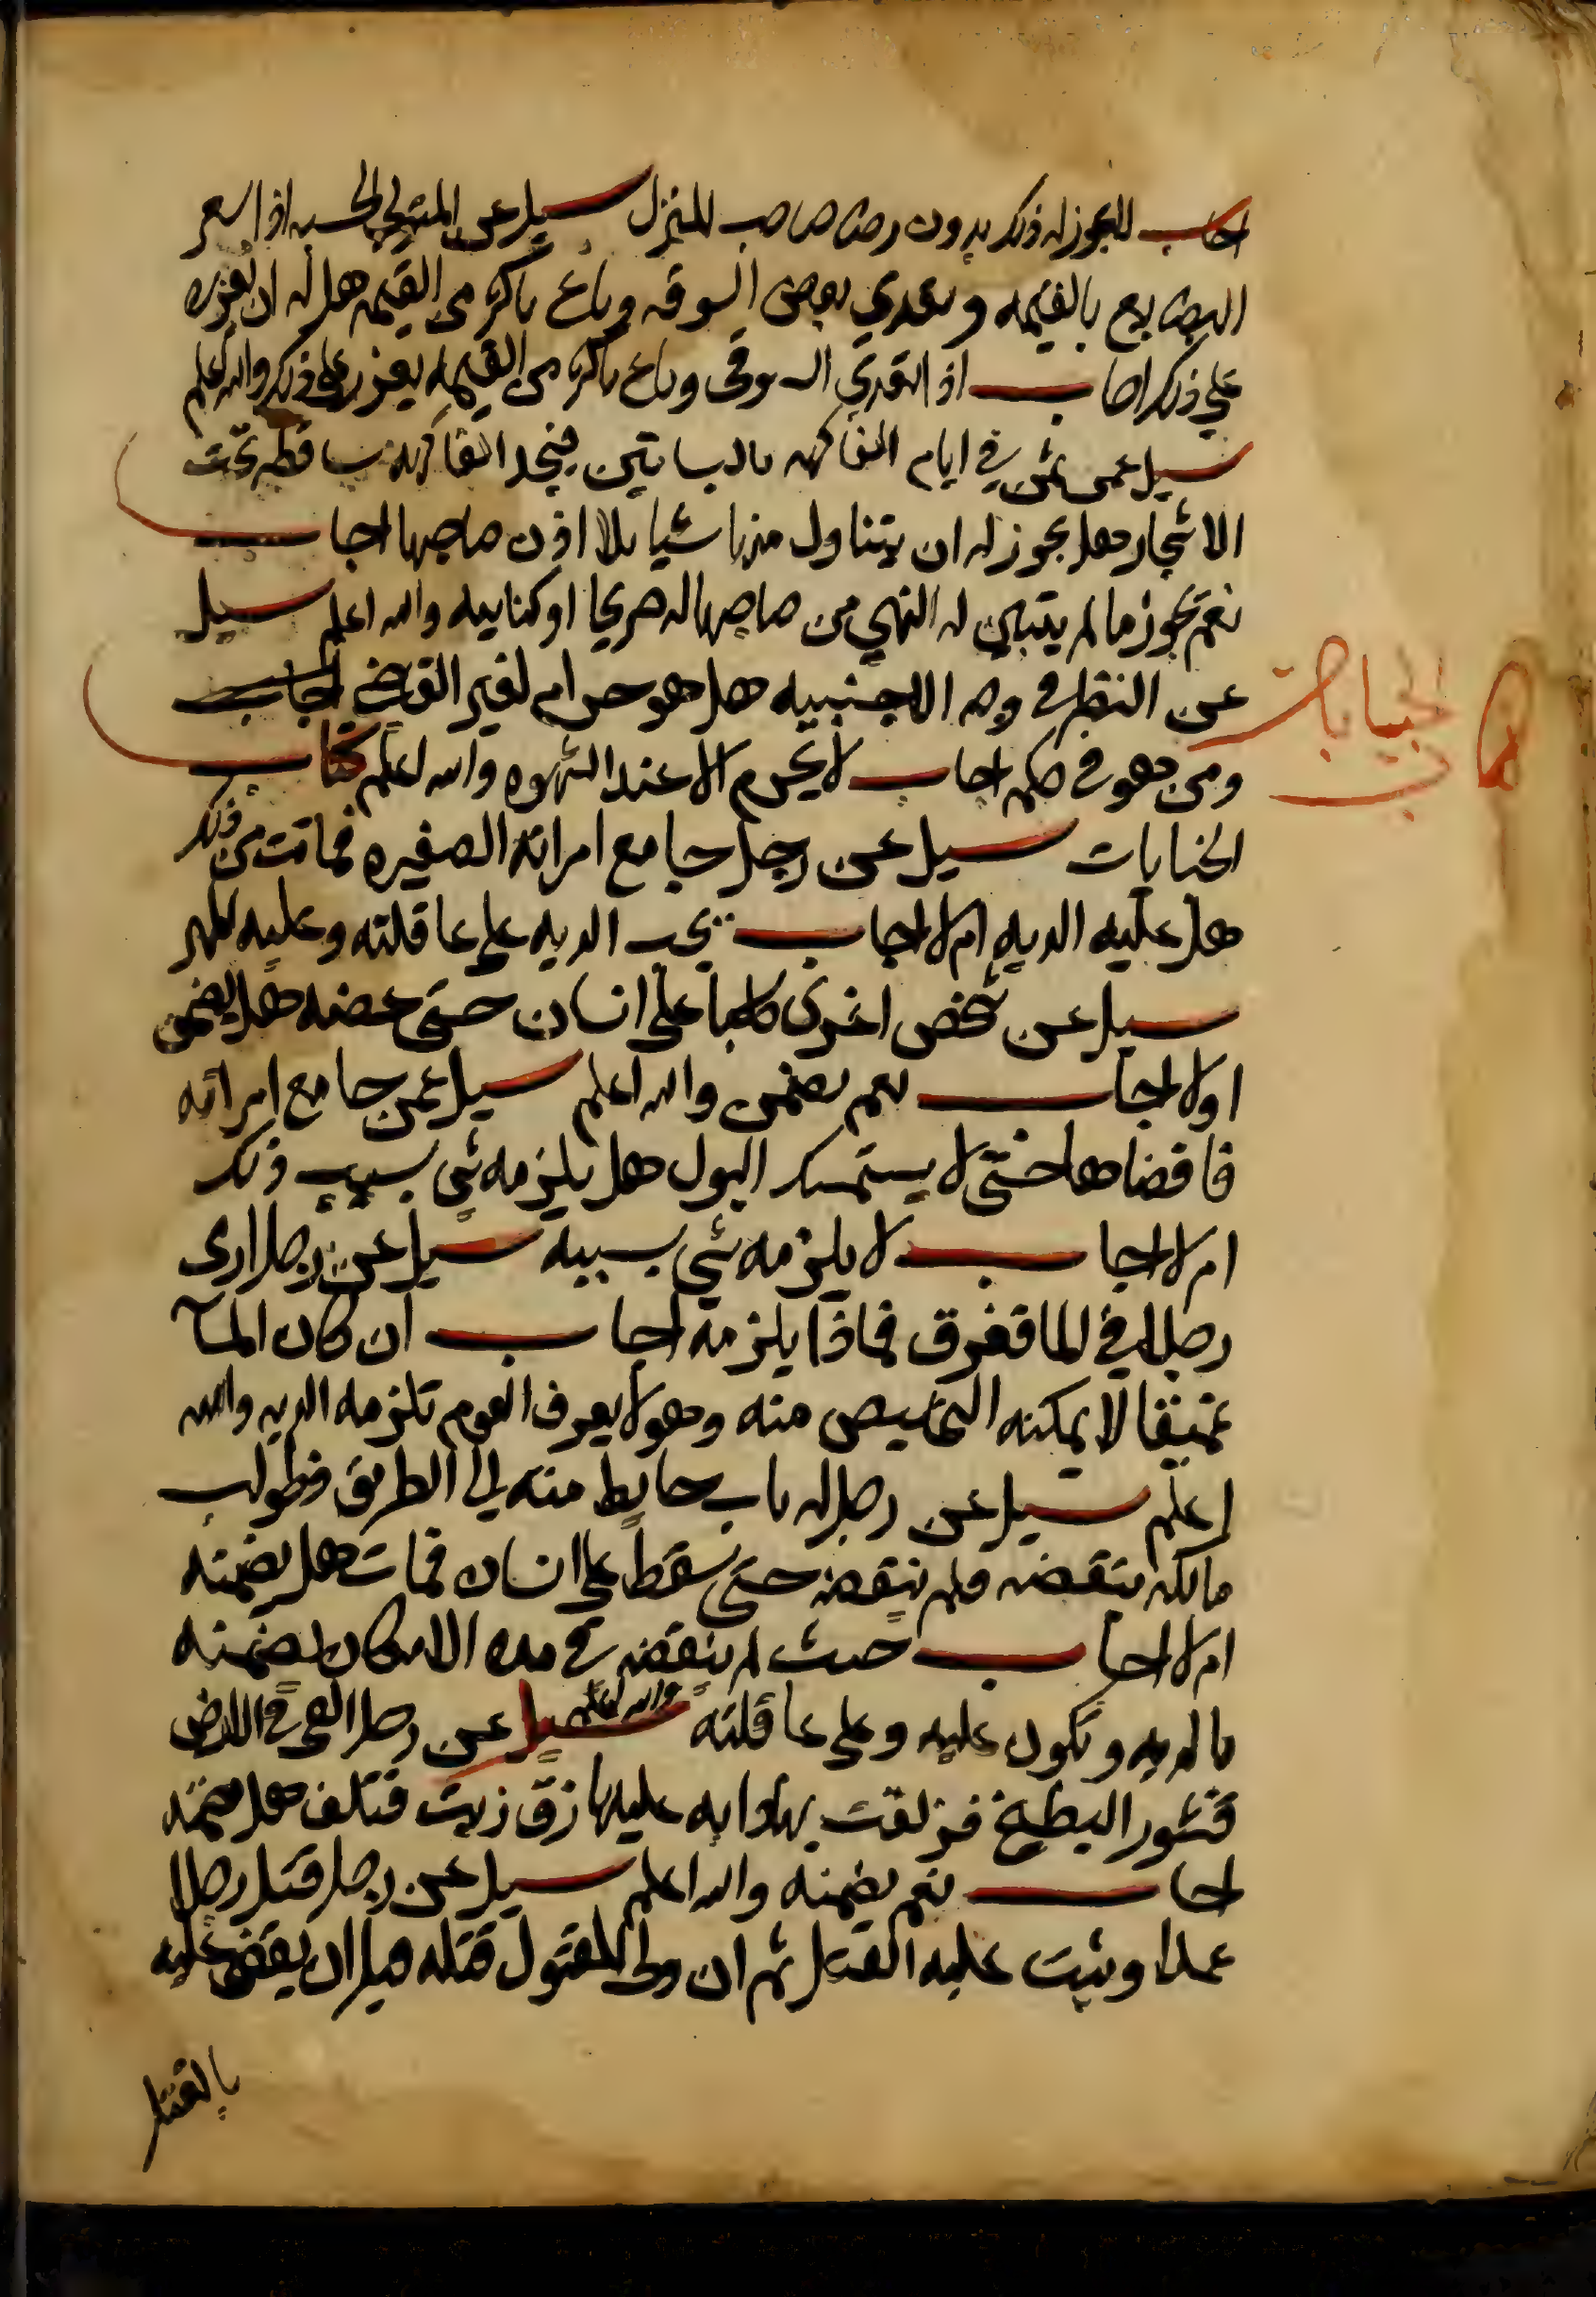 اجاب لا يجوز له ذلك بدون رضا صاحب المنزل سيل عن المتولي الحسبه اذا سعر
البضايع بالقيمه وتعدي بعض السوقه وباع باكثر من القيمه هل له ان يعزره
علي ذلك اجاب اذا تعدي السوقي وباع باكثر من القيمه يعزر على ذلك والله اعلم
سيل عمن يمر في ايام الفاكهه بالبساتين فيجد الفاكهه ساقطه تحت
الاشجار هل يجوز له ان يتناول منها شيا بلا اذن صاحبها اجاب
نعم يجوز ما لم يتبين له النهي من صاحبها له صريحا او كنايه والله اعلم سيل
عن النظر في وجه الاجنبيه هل هو حرام لغير القاضي
ومن هو في حكمه اجاب لا يحرم الا عند الشهوه والله اعلم كتاب
الجنايات سيل عن رجل جامع امراته الصغيره فماتت من ذلك
هل عليه الديه ام لا اجاب تجب الديه على عاقلته وعليه المهر
سيل عن شخص اغرى كلبا على انسان حتى عضه هل يضمن
اولا اجاب نعم يضمن والله اعلم سيل عمن جامع امراته
فافضاها حتى لا يستمسك البول هل يلزمه شي بسبب ذلك
ام لا اجاب لا يلزمه شي بسببه سيل عن رجل
رجلا في الما فغرق فماذا يلزمه اجاب ان كان المآ
عميقا لا يمكنه التخليص منه وهو لا يعرف العوم تلزمه الديه والله
اعلم سيل عن رجل له باب حايط منه الى الطريق فطولب
مالكه بنقضه ولم ينقضه حتى سقط على انسان فمات هل يضمنه
ام لا اجاب حيث لم ينقضه في مده الامكان يضمنه
بالديه وتكون عليه وعلى عاقلته والله اعلم سيل عن رجل القى في الارض
قشور البطيخ فزلقت بها دابه عليها زق زيت فتلف هل يضمنه
اجاب نعم يضمنه والله اعلم سيل عن رجل قتل رجلا
عمدا وثبت عليه القتل ثم ان ولي المقتول قتله قبل ان يقضى عليه
بالقتل
الجنايات